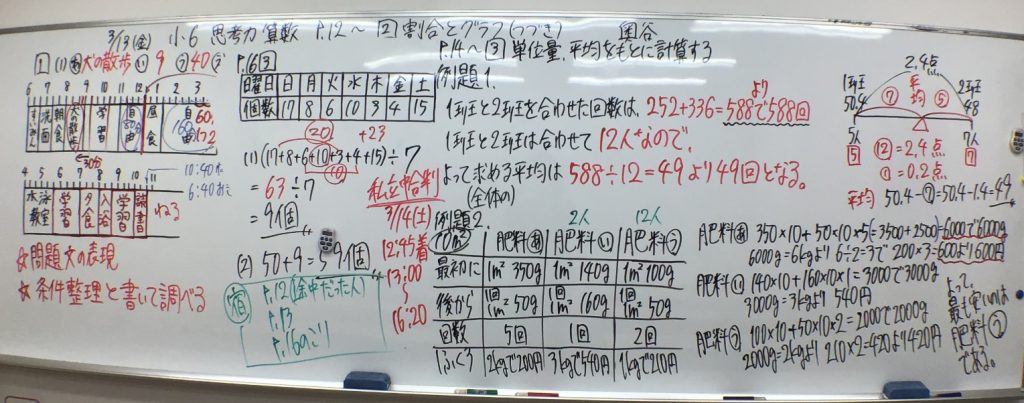 3/13(金) 小6 思考力算数 P.12〜 2 割合とグラフ(つづき) 奥谷
1 (1) あ 犬の散歩 い 9 う 40
6 7 8 9 10 11 12 1 2 3
すいみん 洗面 朝食 犬の散歩 学習 自由 80分 昼食 自由 160分 60分 1722
←30分
4 5 6 7 8 9 10 11
水泳教室 学習 夕食 入浴 学習 読書 ねる
10:40
6:40
☆問題文の表現
☆条件整理と書いて調べる
P.6 3
曜日 日 月 火 水 木 金 土
個数 17 8 6 10 3 4 15
20 +23
(1) (17+8+6+10+3+4+15)÷7
10
=63÷7
=9個
(2) 50+9=59個
宿
P.12(途中だった人)
P.13
P.16のこり
私立中合判
3/14(土)
12:45着
13:00
〜
16:20
P.14〜 3 単位量、平均をもとに計算する
例題1.
1班と2班を合わせた回数は、252+336=588より588回
1班と2班は合わせて12人なので、
よって求める平均は588÷12=49より49回となる。
(全体の)
2.4点
1班 50.4 ⑦ 平均 ⑤ 2班 48
5人 7人
5 7
⑫=2.4点
①=0.2点
平均 50.4-⑦=50.4-1.4=49
例題2.
2人 12人
10m² 肥料あ 肥料い 肥料う
最初に 1m² 350g 1m² 140g 1m² 100g
後から 1回1m² 50g 1回1m² 160g 1回1m² 50g
回数 5回 1回 2回
1ふくろ 2kgで200円 3kgで540円 1kgで210円
肥料あ 350×10+50×10×5(=3500+2500)=6000で6000g
6000g=6kgより 6÷2=3で 200×3=600より600円
肥料い 140×10+160×10×1=3000で3000g
3000g=3kgより 540円
肥料う 100×10+50×10×2=2000で2000g
2000g=2kgより 210×2=420より420円
よって、最も安いのは肥料うである。